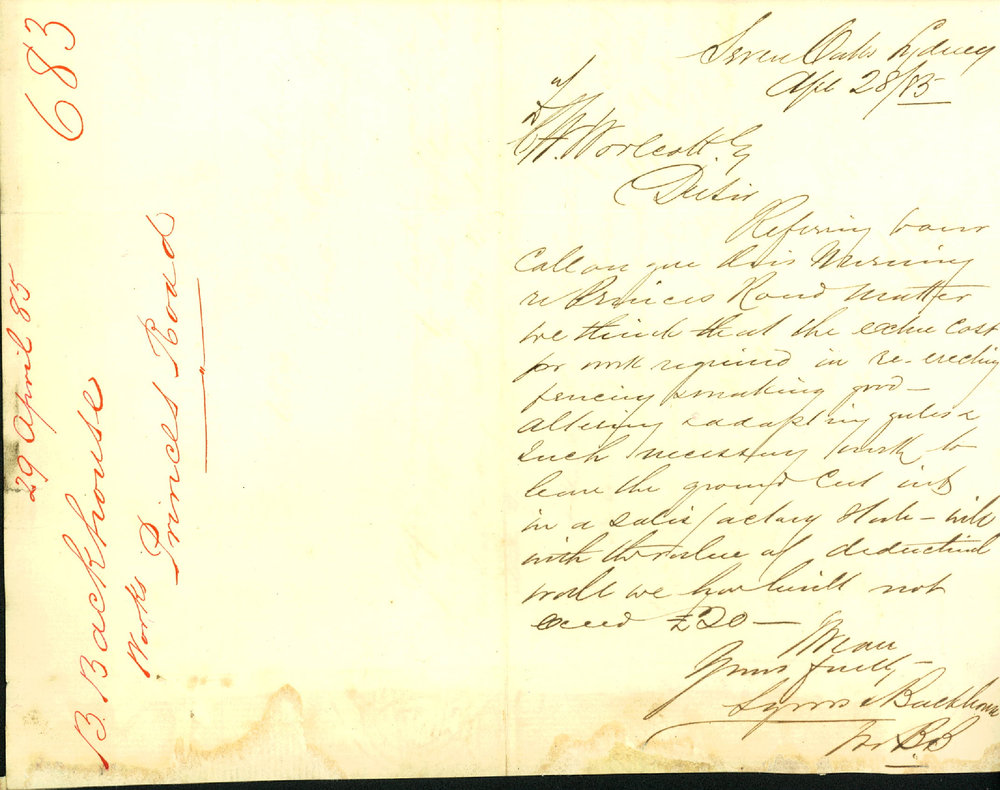 683
29 April 85
B. Backhouse
Works
Princes Road
Seven Oaks Sydney
Apl 28/85
W. Worlcott Esq
Dr Sir
Refering to our
call on you this Morning
re Princes Road matter
we think that the extra cost
for work required in re-erecting
fencing & making good —
altering & adapting gates &
such necessary work to
leave the ground cut into
in a satisfactory state — will
with the value of
wall we have built not
exceed £20 —
We are
Yours truly —
& Backhouse
BB